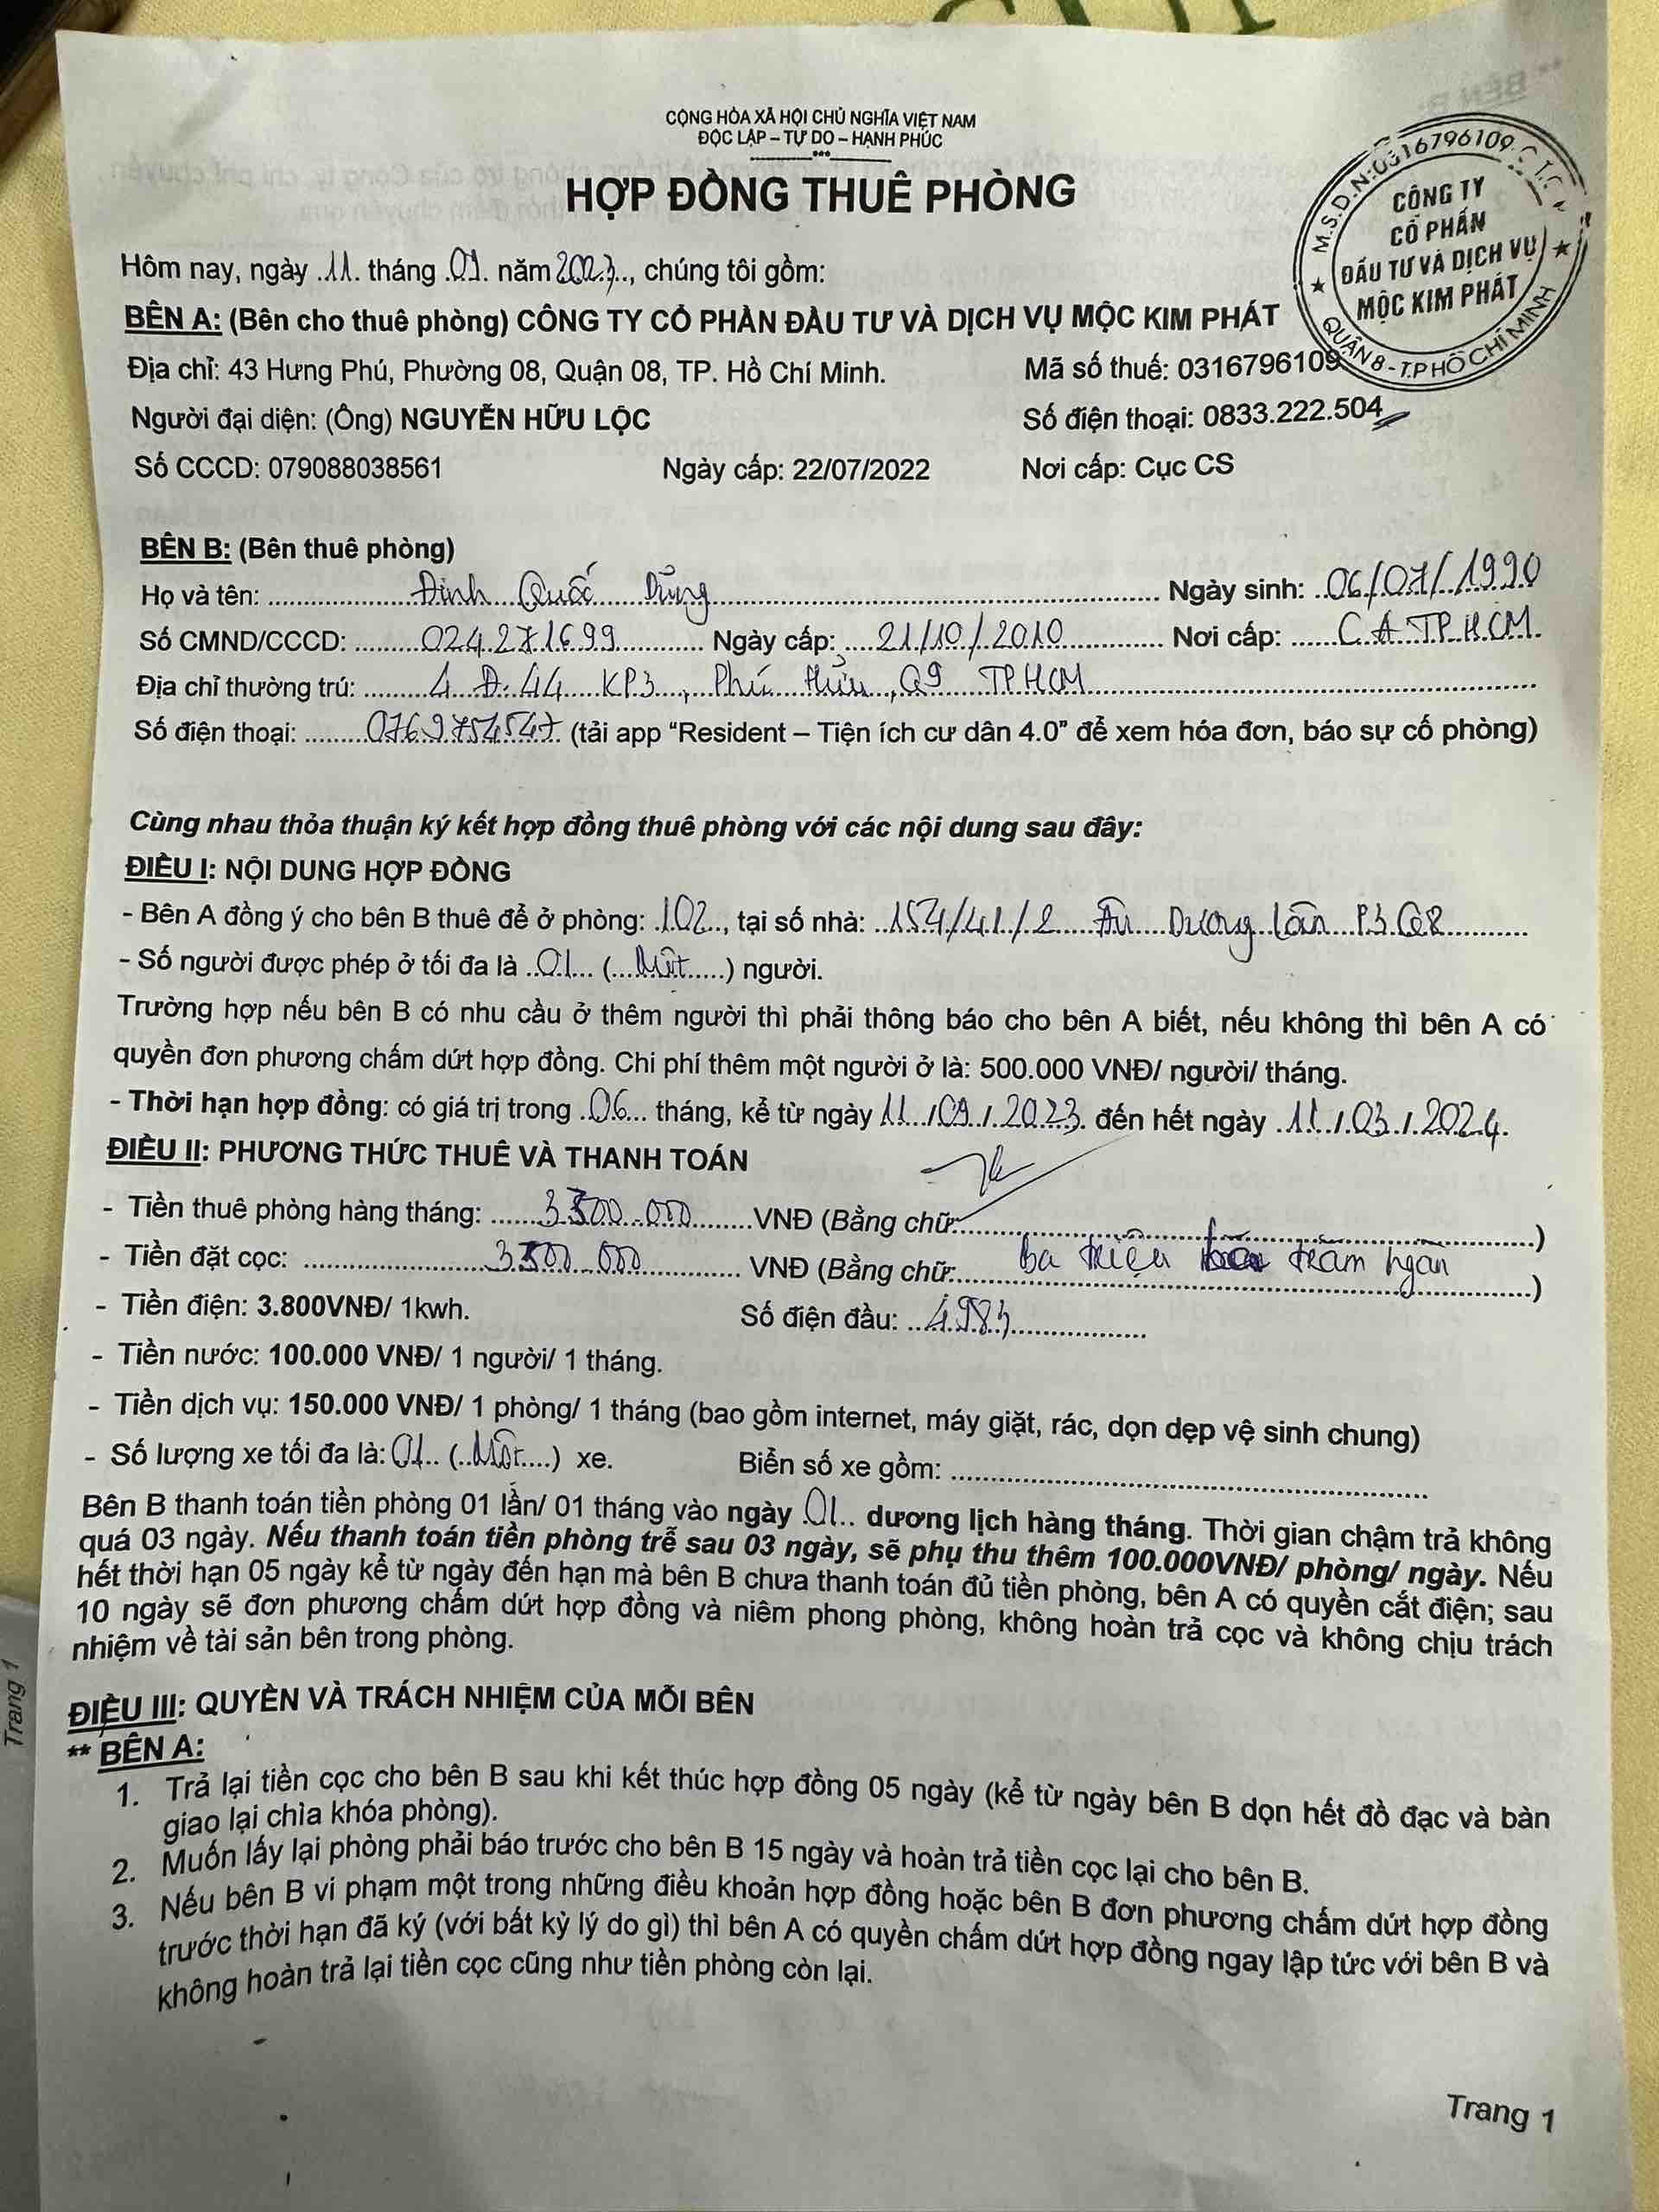 CỘNG HÒA XÃ HỘI CHỦ NGHĨA VIỆT NAM
ĐỘC LẬP – TỰ DO – HẠNH PHÚC
HỢP ĐỒNG THUÊ PHÒNG
M.S.D.N:0316796109
CÔNG TY
CỔ PHẦN
ĐẦU TƯ VÀ DỊCH VỤ
MỘC KIM PHÁT
QUẬN 8 - T.P HỒ CHÍ MINH
Hôm nay, ngày 11 tháng 09 năm 2023, chúng tôi gồm:
BÊN A: (Bên cho thuê phòng) CÔNG TY CỔ PHẦN ĐẦU TƯ VÀ DỊCH VỤ MỘC KIM PHÁT
Địa chỉ: 43 Hưng Phú, Phường 08, Quận 08, TP. Hồ Chí Minh. Mã số thuế: 0316796109
Người đại diện: (Ông) NGUYỄN HỮU LỘC Số điện thoại: 0833.222.504
Số CCCD: 079088038561 Ngày cấp: 22/07/2022 Nơi cấp: Cục CS
BÊN B: (Bên thuê phòng)
Họ và tên: Đinh Quốc Dũng Ngày sinh: 06/07/1990
Số CMND/CCCD: 024271699 Ngày cấp: 21/10/2010 Nơi cấp: C.A TP.HCM
Địa chỉ thường trú: 4 Đ. 44 KP3, Phú Hữu, Q9 TPHCM
Số điện thoại: 0769754547 (tải app “Resident – Tiện ích cư dân 4.0” để xem hóa đơn, báo sự cố phòng)
Cùng nhau thỏa thuận ký kết hợp đồng thuê phòng với các nội dung sau đây:
ĐIỀU I: NỘI DUNG HỢP ĐỒNG
- Bên A đồng ý cho bên B thuê để ở phòng: 102, tại số nhà: 154/41/2 Âu Dương Lân P3 Q8
- Số người được phép ở tối đa là 01 (Một) người.
Trường hợp nếu bên B có nhu cầu ở thêm người thì phải thông báo cho bên A biết, nếu không thì bên A có
quyền đơn phương chấm dứt hợp đồng. Chi phí thêm một người ở là: 500.000 VNĐ/ người/ tháng.
- Thời hạn hợp đồng: có giá trị trong 06 tháng, kể từ ngày 11/09/2023 đến hết ngày 11/03/2024.
ĐIỀU II: PHƯƠNG THỨC THUÊ VÀ THANH TOÁN
- Tiền thuê phòng hàng tháng: 3.300.000 VNĐ (Bằng chữ: )
- Tiền đặt cọc: 3.300.000 VNĐ (Bằng chữ: Ba triệu trăm ngàn )
- Tiền điện: 3.800VNĐ/ 1kwh. Số điện đầu: 4983
- Tiền nước: 100.000 VNĐ/ 1 người/ 1 tháng.
- Tiền dịch vụ: 150.000 VNĐ/ 1 phòng/ 1 tháng (bao gồm internet, máy giặt, rác, dọn dẹp vệ sinh chung)
- Số lượng xe tối đa là: 01 (Một) xe. Biển số xe gồm:
Bên B thanh toán tiền phòng 01 lần/ 01 tháng vào ngày 01 dương lịch hàng tháng. Thời gian chậm trả không
quá 03 ngày. Nếu thanh toán tiền phòng trễ sau 03 ngày, sẽ phụ thu thêm 100.000VNĐ/ phòng/ ngày. Nếu
hết thời hạn 05 ngày kể từ ngày đến hạn mà bên B chưa thanh toán đủ tiền phòng, bên A có quyền cắt điện; sau
10 ngày sẽ đơn phương chấm dứt hợp đồng và niêm phong phòng, không hoàn trả cọc và không chịu trách
nhiệm về tài sản bên trong phòng.
ĐIỀU III: QUYỀN VÀ TRÁCH NHIỆM CỦA MỖI BÊN
** BÊN A:
1. Trả lại tiền cọc cho bên B sau khi kết thúc hợp đồng 05 ngày (kể từ ngày bên B dọn hết đồ đạc và bàn
giao lại chìa khóa phòng).
2. Muốn lấy lại phòng phải báo trước cho bên B 15 ngày và hoàn trả tiền cọc lại cho bên B.
3. Nếu bên B vi phạm một trong những điều khoản hợp đồng hoặc bên B đơn phương chấm dứt hợp đồng
trước thời hạn đã ký (với bất kỳ lý do gì) thì bên A có quyền chấm dứt hợp đồng ngay lập tức với bên B và
không hoàn trả lại tiền cọc cũng như tiền phòng còn lại.
Trang 1
Trang 1